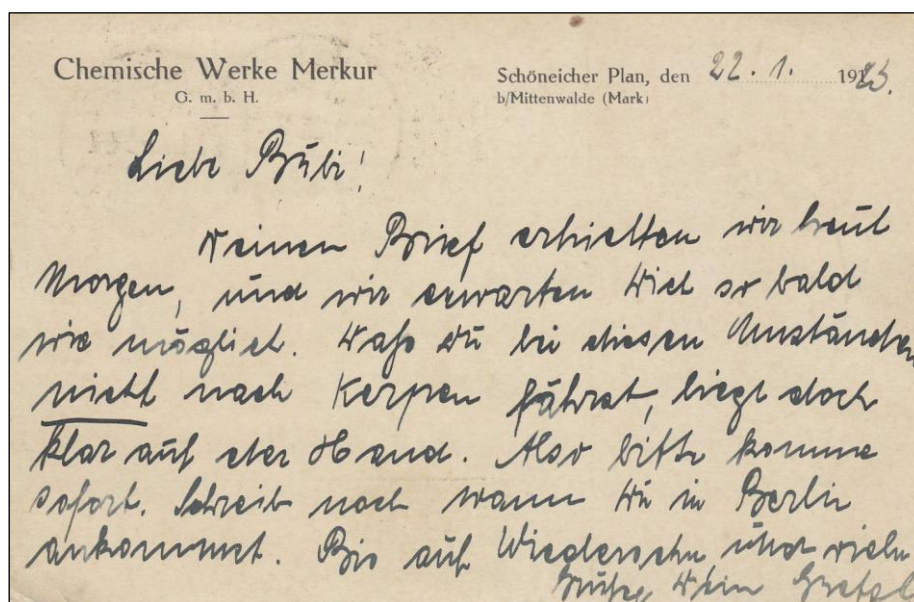 Chemische Werke Merkur
G. m. b. H.
Schöneicher Plan, den 22. 1. 1923.
b/Mittenwalde (Mark)
Liebe Bubi!
Deinen Brief erhielten wir heut
Morgen, und wir erwarten Dich so bald
wie möglich. Daß Du bei diesen Umständen
nicht nach Kerpen fährst, liegt doch
klar auf der Hand. Also bitte komme
sofort. Schreib noch wann Du in Berlin
ankommst. Bis auf Wiedersehn und viele
Grüße Dein